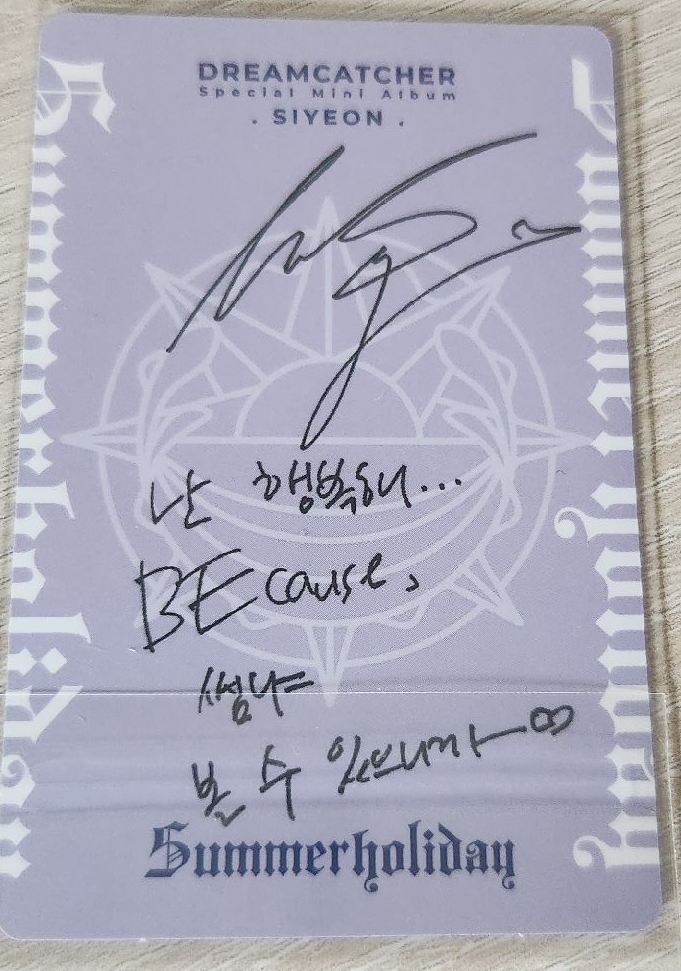 DREAMCATCHER
Special Mini Album
. SIYEON .
난 행복해...
BEcause,
썸냐
볼 수 있으니까~∞
Summerholiday
Summerholiday
Summerholiday